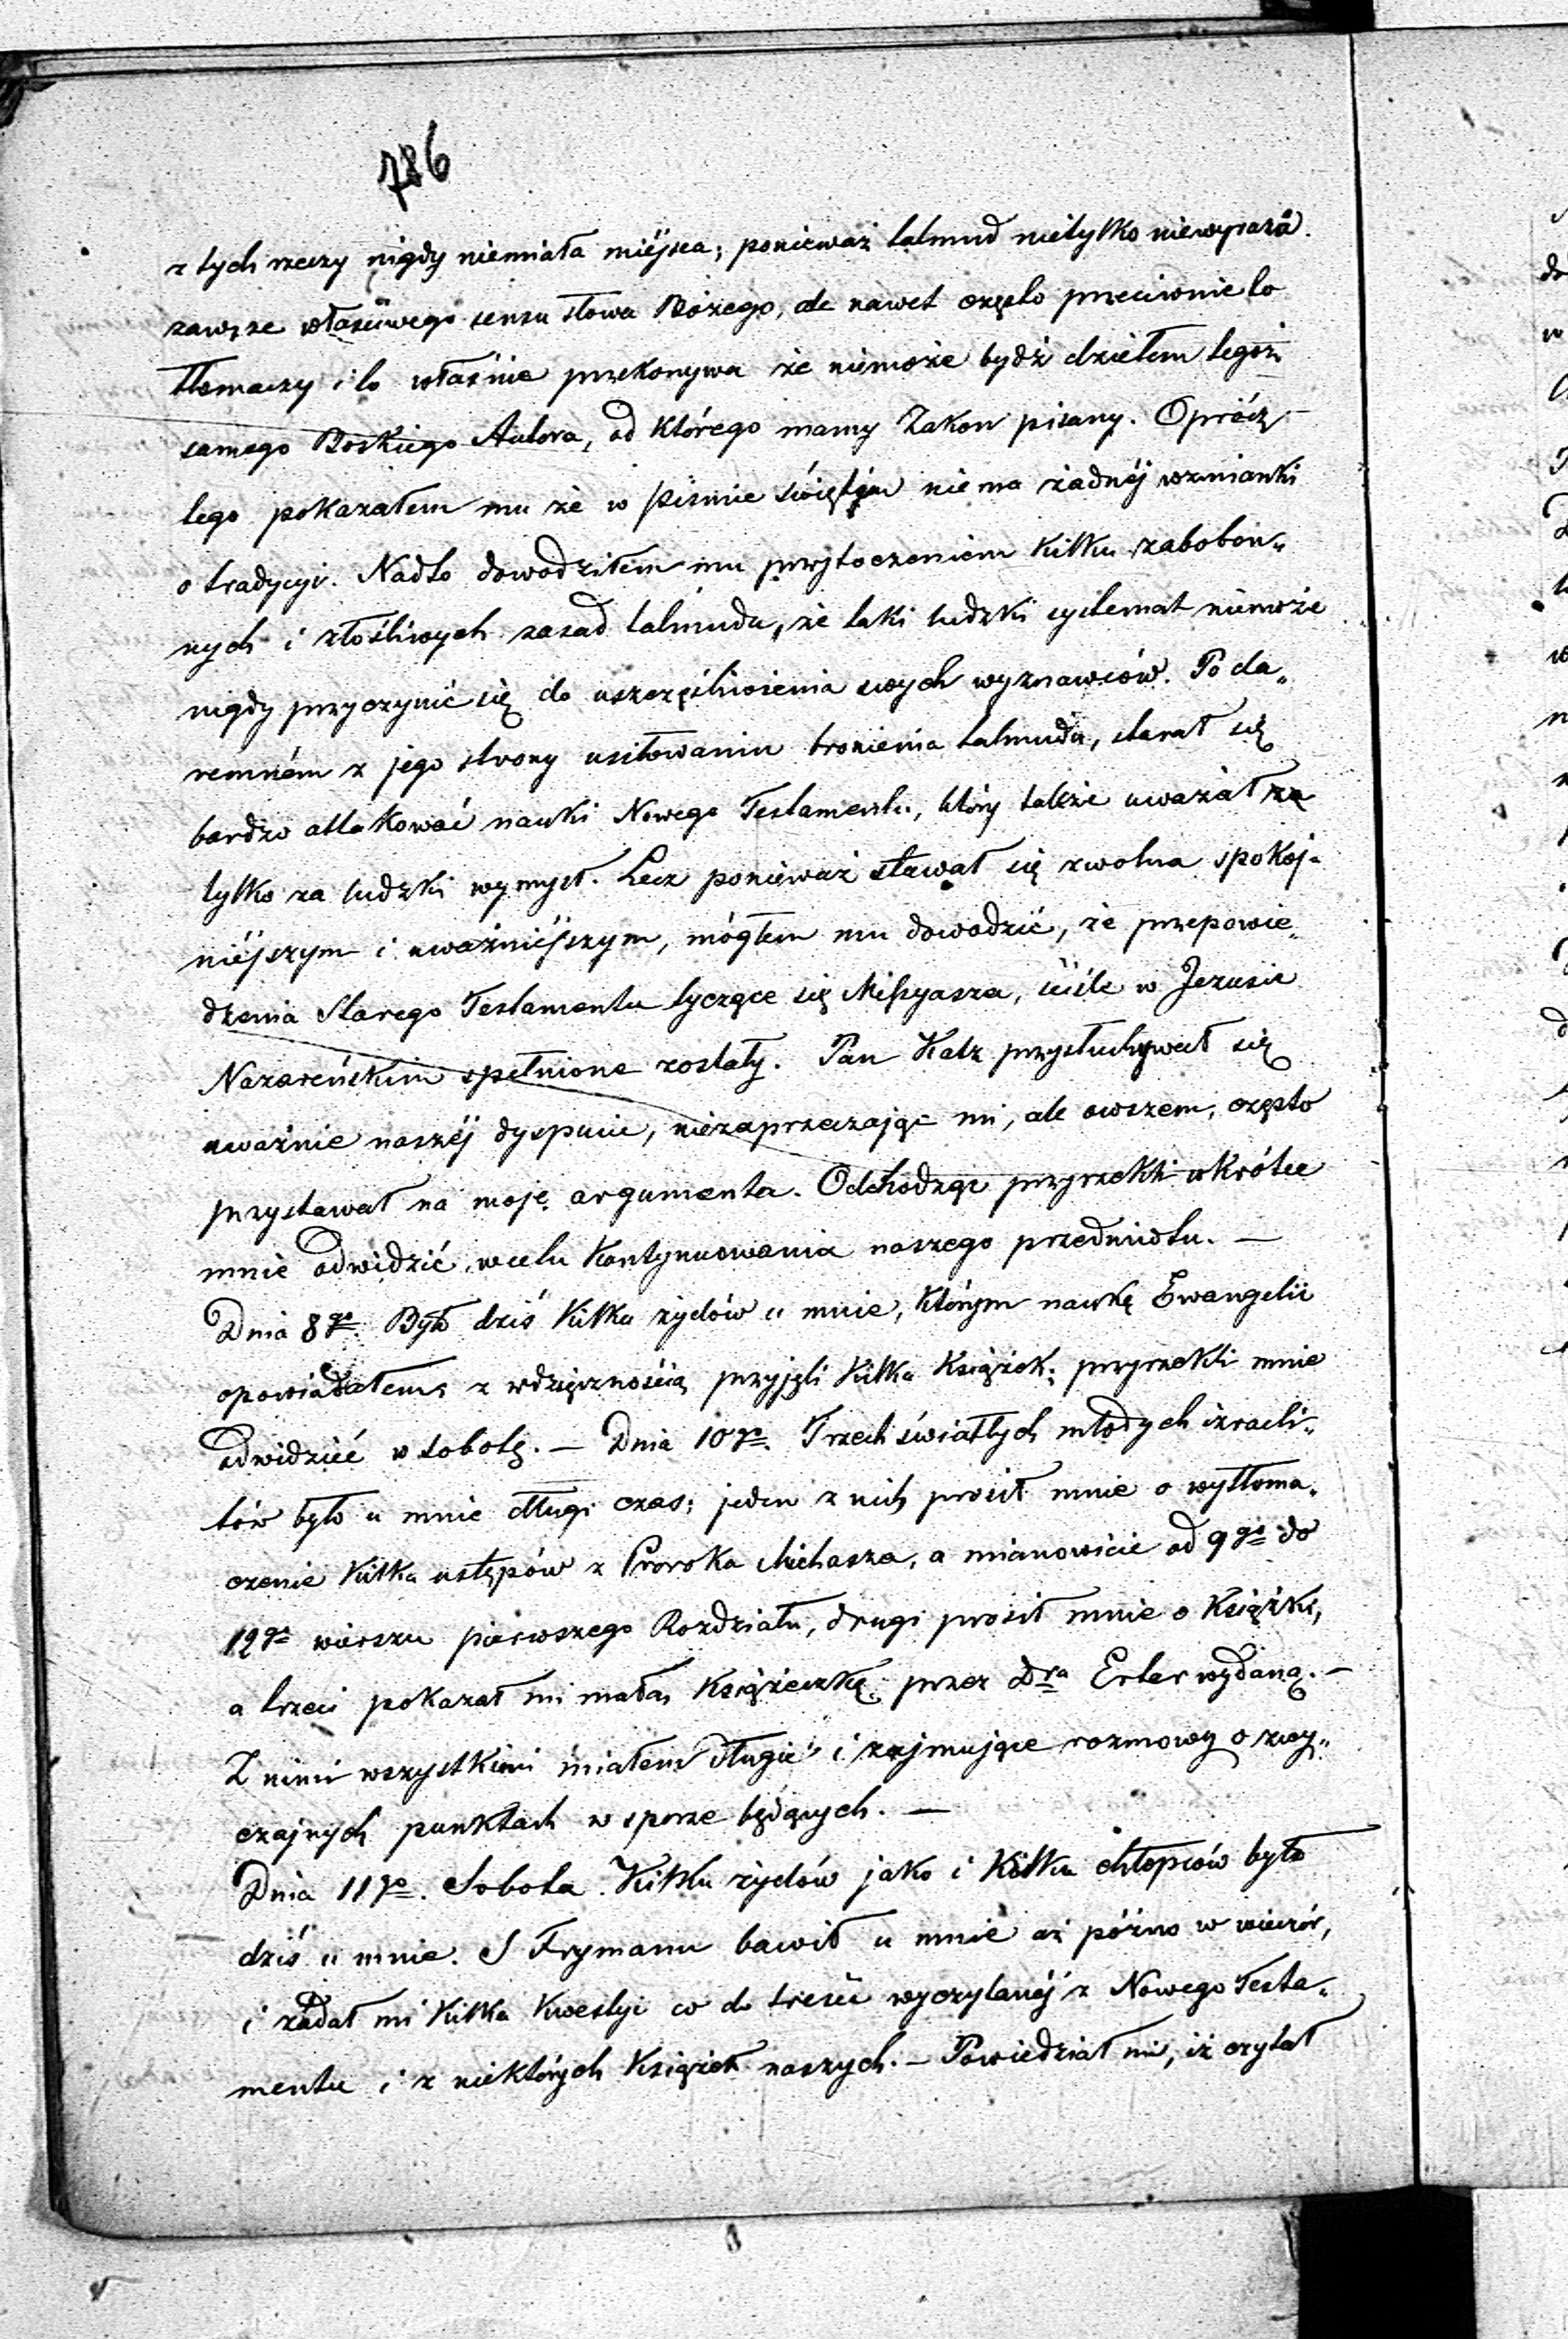 786
z tych rzeczy nigdy niemiała miéjsca; ponieważ talmud nietylko niewyraża
zawsze właściwego sensu słowa Bożego, ale nawet często przeciwnie to
tłomaczy i to właśnie przekonywa że niemoże bydź dziełem tegoż
samego Boskiego Autora, od którego mamy Zakon pisany. Oprócz
tego pokazałem mu że w piśmie świętém niema żadnéj wzmianki
o tradycyi. Nadto dowodziłem mu przytoczeniem kilku zabobon„
nych i złośliwych zasad talmudu, że taki ludzki systemat niemoże
nigdy przyczynić się do uszczęśliwienia swych wyznawców. Po da„
remném z jego strony usiłowaniu bronienia talmudu, starał się
bardzo attakować nauki Nowego Testamentu, który także uważał za
tylko za ludzki wymysł. Lecz ponieważ stawał się zwolna spokoj-
niéjszym i uważniéjszym, mógłem mu dowodzić, że przepowie„
dzenia Starego Testamentu tyczące się Missyasza, ściśle w Jezusie
Nazareńskim spełnione zostały. Pan Katz przysłuchywał się
uważnie naszéj dyspucie, niezaprzeczając mi, ale owszem, często
przystawał na moje argumenta. Odchodząc przyrzekli wkrótce
mnie odwidzić w celu kontynuowania naszego przedmiotu. —
Dnia 8go. Było dziś kilku żydów u mnie, którym naukę Ewangelii
opowiadałem; z wdzięcznością przyjęli kilka książek; przyrzekli mnie
odwidzić w sobotę. — Dnia 10go. Trzech światłych młodych izraeli„
tów było u mnie długi czas; jeden z nich prosił mnie o wytłoma„
czenie kilka ustępów z Proroka Micheasza, a mianowicie od 9go do
12go wiersza pierwszego Rozdziału, drugi prosił mnie o książki,
a trzeci pokazał mi małą książeczkę przez Dra Erter wydaną. —
Z nimi wszystkimi miałem długie i zajmujące rozmowy o zwy„
czajnych punktach w sporze będących. —
Dnia 11go. Sobota. Kilku żydów jako i kilku chłopców było
dziś u mnie. S Frymann bawił u mnie aż późno w wieczór,
i zadał mi kilka kwestyi co do treści wyczytanéj z Nowego Testa„
mentu i z niektórych książek naszych. — Powiedział mi, iż czytał